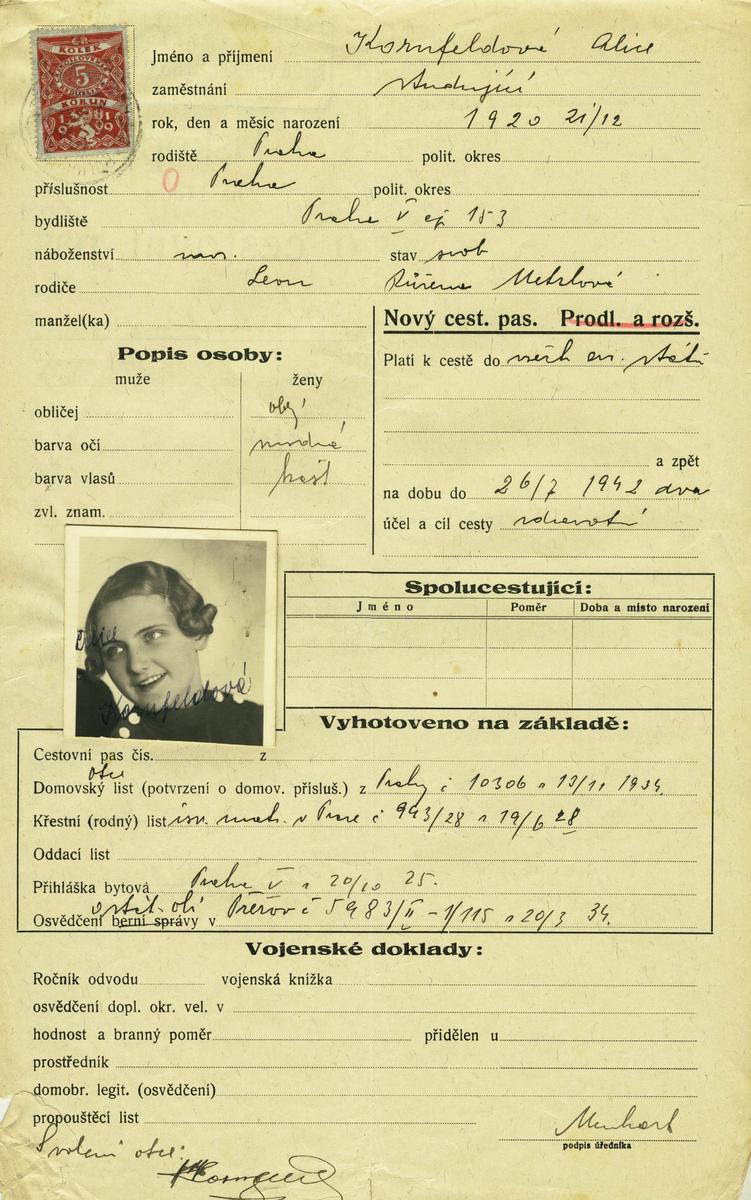 Č.R.
KOLEK
5
KORUN
1919
Jméno a příjmení Kornfeldová Alice
zaměstnání studující
rok, den a měsíc narození 1920 21/12
rodiště Praha polit. okres
příslušnost 0 Praha polit. okres
bydliště Praha V čp 153
náboženství stav svob
rodiče Leon Růžena Metzlová
manžel(ka)
Nový cest. pas. Prodl. a rozš.
Popis osoby:
muže ženy
Platí k cestě do všech ev. států
obličej obl
barva očí modré
barva vlasů kašt
a zpět
na dobu do 26/7 1942 dva
zvl. znam.
účel a cíl cesty zdravotní
Alice
Kornfeldová
Spolucestující:
Jméno Poměr Doba a místo narození
Vyhotoveno na základě:
Cestovní pas čís. z
otce
Domovský list (potvrzení o domov. přísluš.) z Prahy č 10306 z 13/11 1934.
Křestní (rodný) list isr. mat. v Praze č 943/28 z 19/6 28
Oddací list
Přihláška bytová Praha V z 20/10 25.
Osvědčení berní správy v č 5983/II - 1/115 z 20/3 34.
Vojenské doklady:
Ročník odvodu vojenská knížka
osvědčení dopl. okr. vel. v
hodnost a branný poměr přidělen u
prostředník
domobr. legit. (osvědčení)
propouštěcí list
podpis úředníka
Svolení otce: